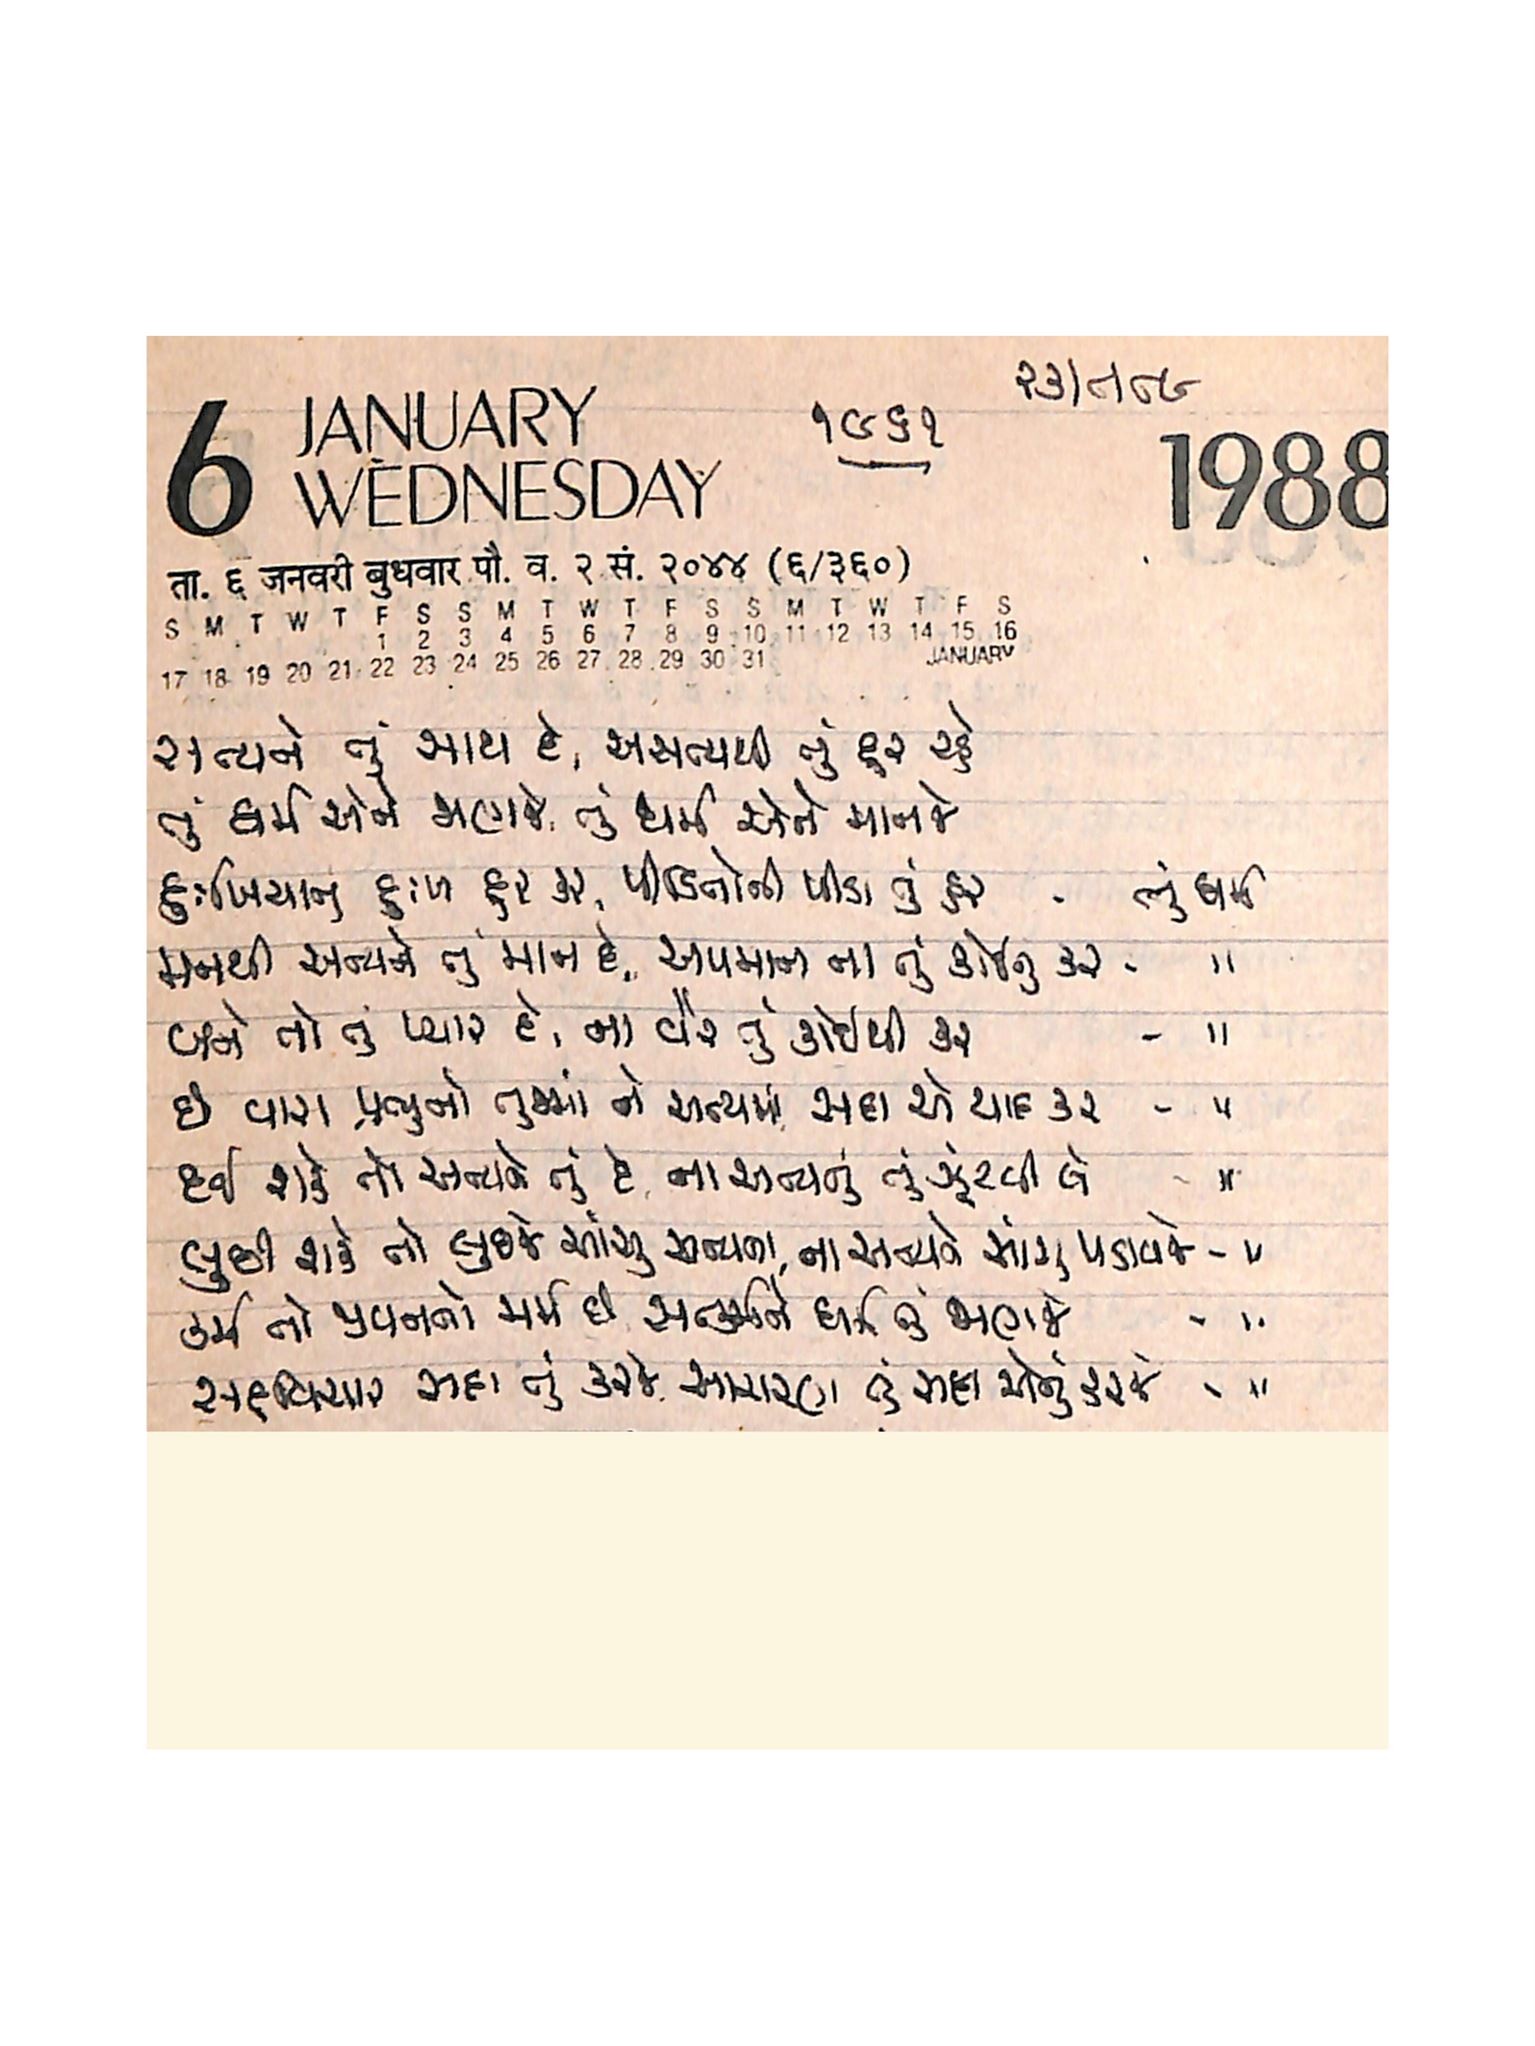 ૨૩/૧/૮૯
૧૯૬૧
6 JANUARY
WEDNESDAY
1988
ता. ६ जनवरी बुधवार पौ. व. २ सं. २०४४ (६/३६०)
S M T W T F S S M T W T F S S M T W T F S
1 2 3 4 5 6 7 8 9 10 11 12 13 14 15 16
17 18 19 20 21 22 23 24 25 26 27 28 29 30 31 JANUARY
સત્યને તું સાથ દે, અસત્યથી તું દૂર રહે
તું ધર્મ એને જાણજે, તું ધર્મ એને માનજે
દુઃખિયાનું દુઃખ દૂર કર, પીડિતોની પીડા તું હર - તું ધર્મ
મનથી અન્યને તું માન દે, અપમાન ના તું કોઈનું કર - "
બને તો તું પ્યાર દે, ના વૈર તું કોઈથી કર - "
છે વાસ પ્રભુનો તુજમાં ને અન્યમાં, સદા એ યાદ કર - "
દઈ શકે તો અન્યને તું દે, ના અન્યનું તું ઝૂંટવી લે - "
લુછી શકે તો લુછજે આંસુ અન્યના, ના અન્યને આંસુ પડાવજે - "
કર્મ તો જીવનનો મર્મ છે, સત્કર્મને ધર્મ તું જાણજે - "
સદ્દવિચાર સદા તું કરજે, આચરણ તું સદા એનું કરજે - "